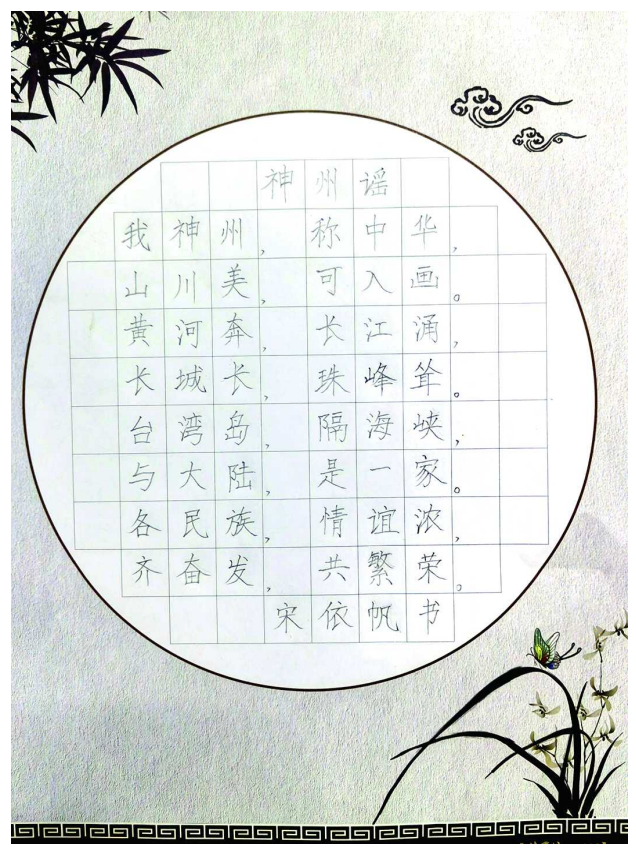 神州谣
我神州,称中华,
山川美,可入画。
黄河奔,长江涌,
长城长,珠峰耸。
台湾岛,隔海峡,
与大陆,是一家。
各民族,情谊浓,
齐奋发,共繁荣。
宋依帆书